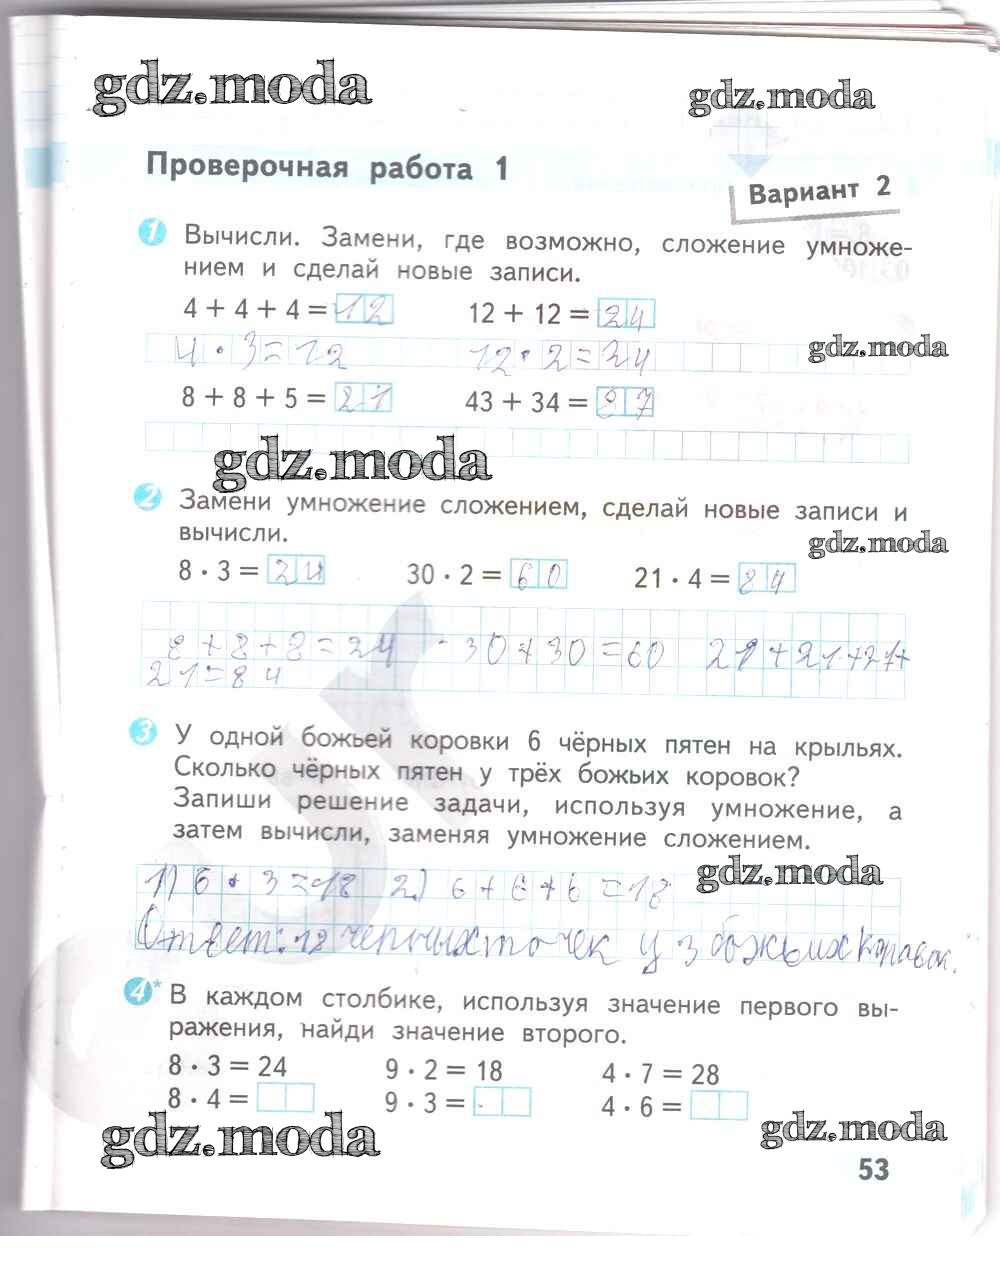 gdz.moda
gdz.moda
Проверочная работа 1
Вариант 2
1 Вычисли. Замени, где возможно, сложение умноже-
нием и сделай новые записи.
4 + 4 + 4 = 12 12 + 12 = 24
4 · 3 = 12 12 · 2 = 24
gdz.moda
8 + 8 + 5 = 21 43 + 34 = 87
gdz.moda
2 Замени умножение сложением, сделай новые записи и
вычисли.
gdz.moda
8 · 3 = 24 30 · 2 = 60 21 · 4 = 84
8 + 8 + 8 = 24 30 + 30 = 60 21 + 21 + 21 +
21 = 84
3 У одной божьей коровки 6 чёрных пятен на крыльях.
Сколько чёрных пятен у трёх божьих коровок?
Запиши решение задачи, используя умножение, а
затем вычисли, заменяя умножение сложением.
1) 6 · 3 = 18 2) 6 + 6 + 6 = 18
gdz.moda
Ответ: 18 черных точек у 3 божьих коравок.
4* В каждом столбике, используя значение первого вы-
ражения, найди значение второго.
8 · 3 = 24 9 · 2 = 18 4 · 7 = 28
8 · 4 = 9 · 3 = 4 · 6 =
gdz.moda
gdz.moda
53